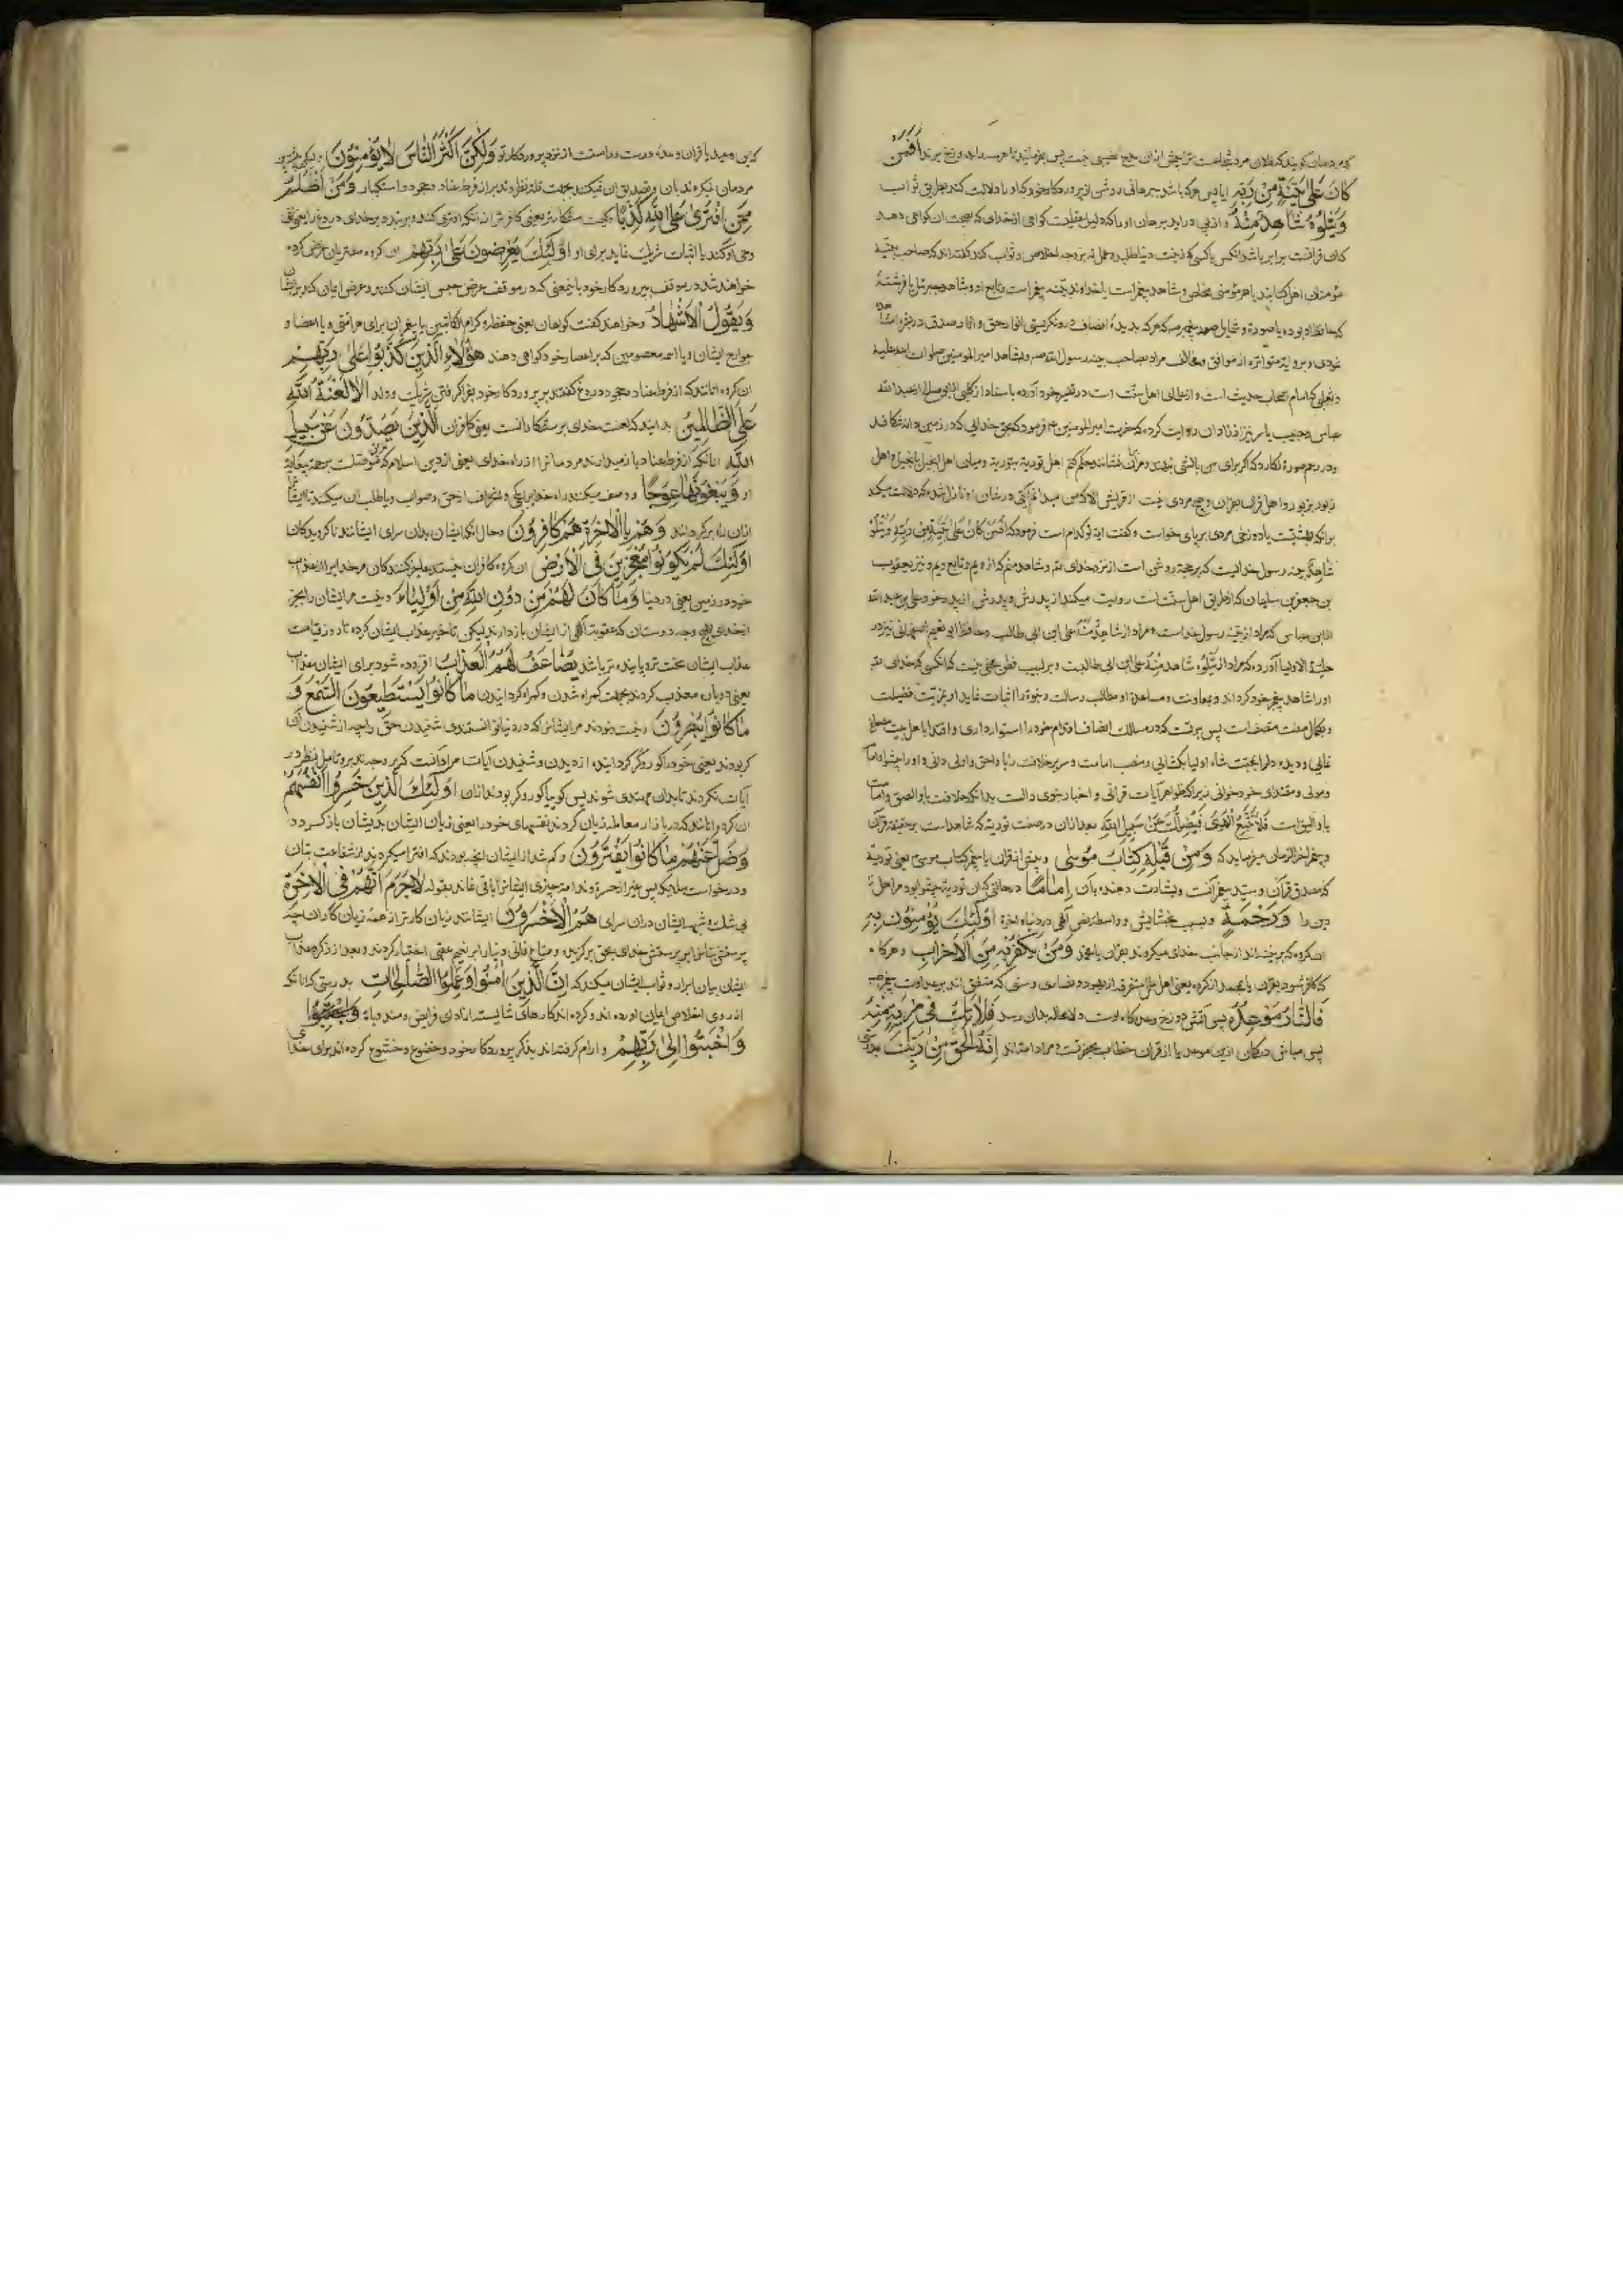 که مردمان گویند که فلان مرد شجاعت أَفَمَنْ
كَانَ عَلَىٰ بَيِّنَةٍ مِنْ رَبِّهِ ایا پس هرکه باشد بر برهانی روشن از پروردگار خود که او را دلالت کند بطریق ثواب
وَيَتْلُوهُ شَاهِدٌ مِنْهُ و از پی دراید برهان او را که دلیل عقلیست کواهی از خدای که بصحت ان کواهی دهد
که ان قرانست برابر باشد انکس باکسی که نیت دنیا طلبد و عمل نه بر وجه اخلاص و ثواب کند گفته اند که صاحب بینه
مؤمنان اهل کتابند یا هر مؤمنی مخلص و شاهد پیغمبر است یا خداوند بینه پیغمبر است و تابع او و شاهد جبرئیل یا فرشتهٔ
که حافظ او بوده یا صورة و شمایل حضرت پیغمبر که هر که بدیدهٔ انصاف در و نگریستی انوار حق و اثار صدق در
نمودی و بروایة متواتره از موافق و مخالف مراد بصاحب بینه رسول الله صم و بشاهد امیر المومنین صلوات الله علیه
و ثعلبی که امام اصحاب حدیث است و از اعالی اهل سنت است در تفسیر خود آورده باسناد از کلبی از ابو صالح از عبد الله
عباس و حبیب یاسر نیز از زاذان روایت کرده که حضرت امیر المومنین ع فرمود که بحق خدایی که در زمین دانه شکافد
و در رحم صورة نگارد که اگر برای من بالشی بنهند و مرا بران بنشانند حکم کنم اهل توریة بتوریة و میان اهل انجیل بانجیل و اهل
زبور بزبور و اهل قران بقران و هیچ مردی نیست از قریش الا که من میدانم که آیتی در شان او نازل شد که دلالت میکند
برانکه بهشتیست یا دوزخی مردی بر پای خواست و گفت ایة تو کدام است فرمود که أَفَمَنْ كَانَ عَلَىٰ بَيِّنَةٍ مِنْ رَبِّهِ وَيَتْلُوهُ
شَاهِدٌ مِنْهُ رسول خداست که بر حجة روشن است از نزد خدای خود و شاهد منم که از ویم و تابع ویم و نیز یعقوب
بن جعفر بن سلیمان که از طریق اهل سنت است روایت میکند از پدرش و پدرش از پدر خود علی بن عبد الله
از ابن عباس که مراد از بینه رسول خداست و مراد از شَاهِدٌ مِنْهُ علی ابن ابی طالب و حافظ ابو نعیم اصفهانی نیز در
حلیة الاولیا آورده که مراد از یتلوه شاهد منه علی ابن ابی طالبست و بر لبیب فطن مخفی نیست که انکسی که خدای تعالی
او را شاهد پیغمبر خود گرداند و بمعاونت و مساعدة او مطالب رسالت و نبوة را اثبات نماید او بمزیت فضیلت
و بکمال صفت متصف است پس بر تست که در مسالک انصاف اقدام خود را استوار داری و اقتدا باهل بیت مصطفی
نمایی و دیده دل را بمحبت شاه اولیا بگشایی و منصب امامت و سریر خلافت را باو احق و اولی دانی و او را پیشوا و امام
و مولی و مقتدای خود خوانی زیرا که ظواهر آیات قرانی و اخبار نبوی دالست بدانکه خلافت باو الصق و امامت
باو الیق است فَلَا تَتَّبِعِ الْهَوَىٰ فَيُضِلَّكَ عَنْ سَبِيلِ اللَّهِ بعد ازان در صفت توریة که شاهد است بر حقیقت قرآن
و پیغمبر اخر الزمان میفرماید که وَمِنْ قَبْلِهِ كِتَابُ مُوسَىٰ و پیش از قران یا پیغمبر کتاب موسی ع یعنی توریة
که مصدق قرآن و سید پیغمبرانست و بشارت دهنده بآن إِمَامًا در حالتی که ان توریة پیشوا بود مر اهل
دین را وَرَحْمَةً و سبب بخشایش و واسطهٔ فیض الهی در دنیا و اخرة أُولَٰئِكَ يُؤْمِنُونَ بِهِ
ان گروه که بر بینه اند از جانب خدای میگروند بقران یا محمد وَمَنْ يَكْفُرْ بِهِ مِنَ الْأَحْزَابِ و هر که
که کافر شود بقران یا بمحمد از گروه یعنی اهل ملل متفرقه از یهود و نصاری و مشرکی که متفق اند بر عداوت پیغمبر
فَالنَّارُ مَوْعِدُهُ پس آتش دوزخ وعده گاه اوست و لامحاله بدان رسد فَلَا تَكُ فِي مِرْيَةٍ مِنْهُ
پس مباش در گمان ازین موعد یا از قران خطاب بحضرتست و مراد امت اند إِنَّهُ الْحَقُّ مِنْ رَبِّكَ بدرستی
که این وعید یا قران وعدهٔ درست و راستست از نزد پروردگار تو وَلَٰكِنَّ أَكْثَرَ النَّاسِ لَا يُؤْمِنُونَ و لیکن بیشترین
مردمان نمیگروند بان و تصدیق ان نمیکنند بجهت قلة نظر و تدبر از فرط عناد و جحود و استکبار وَمَنْ أَظْلَمُ
مِمَّنِ افْتَرَىٰ عَلَى اللَّهِ كَذِبًا و کیست ستمکارتر یعنی کافرتر از انکه افترا کند و بربندد بر خدای دروغ را یعنی نفی
وحی او کند یا اثبات شریک نماید برای او أُولَٰئِكَ يُعْرَضُونَ عَلَىٰ رَبِّهِمْ ان گروه مفتریان عرض کرده
خواهند شد در موقف بپروردگار خود باینمعنی که در موقف عرض حبس ایشان کنند و عرض اعمال کند بر ایشان
وَيَقُولُ الْأَشْهَادُ و خواهند گفت کواهان یعنی حفظه و کرام الکاتبین یا پیغمبران برای هر امتی و یا اعضا و
جوارح ایشان و یا ائمه معصومین که بر اعصار خود کواهی دهند هَٰؤُلَاءِ الَّذِينَ كَذَبُوا عَلَىٰ رَبِّهِمْ
ان گروه انانند که از فرط عناد و جحود دروغ گفتند بر پروردگار خود بفرا گرفتن شریک و ولد أَلَا لَعْنَةُ اللَّهِ
عَلَى الظَّالِمِينَ بدانید که لعنت خدای بر ستمکارانست یعنی کافران الَّذِينَ يَصُدُّونَ عَنْ سَبِيلِ
اللَّهِ انانکه از فرط عناد باز میدارند مردمانرا از راه خدای یعنی از دین اسلام که
او وَيَبْغُونَهَا عِوَجًا و وصف میکنند راه خدا براکجی و انحراف از حق و صواب و یا طلب ان میکنند تا ایشان
ازان راه برگردانند وَهُمْ بِالْآخِرَةِ هُمْ كَافِرُونَ و حال انکه ایشان بدان سرای ایشانند ناگرویدگان
أُولَٰئِكَ لَمْ يَكُونُوا مُعْجِزِينَ فِي الْأَرْضِ ان گروه کافران نیستند عاجز کنندگان مر خدایرا از عذاب
خود در زمین یعنی در دنیا وَمَا كَانَ لَهُمْ مِنْ دُونِ اللَّهِ مِنْ أَوْلِيَاءَ و نیست مر ایشان را بجز
از خدای هیچ وجه دوستان که عقوبت الهی از ایشان باز دارند لیکن تاخیر عذاب ایشان کرده تا در روز قیامت
عذاب ایشان سخت تر و پاینده تر باشد يُضَاعَفُ لَهُمُ الْعَذَابُ افزوده شود برای ایشان عذاب
یعنی دوباره معذب گردند بجهت گمراه شدن و گمراه گردانیدن مَا كَانُوا يَسْتَطِيعُونَ السَّمْعَ وَ
مَا كَانُوا يُبْصِرُونَ و نبودند مر ایشانرا که در دنیا توانستندی شنیدن حق را چه از شنیدن آن
کر بودند یعنی خود را کور و کر گردانیده از دیدن و شنیدن آیات مراد آنست که بر وجه تدبر و تامل نظر در
آیات نکردند تا بدان مهتدی شوند پس گوییا کور و کر بودند ازان أُولَٰئِكَ الَّذِينَ خَسِرُوا أَنْفُسَهُمْ
ان گروه انانند که در بازار معامله زیان کردند نفسهای خود را یعنی زیان ایشان بدیشان باز گردد
وَضَلَّ عَنْهُمْ مَا كَانُوا يَفْتَرُونَ و گم شد از ایشان انچه بودند که افترا میکردند از شفاعت بتان
و درخواست ملائکه پس غیر از حسرة و ندامة چیزی ایشانرا باقی نماند بقوله لَا جَرَمَ أَنَّهُمْ فِي الْآخِرَةِ
بی شک و شبهه ایشان دران سرای هُمُ الْأَخْسَرُونَ ایشانند زیان کارتر از همه زیان کاران چه
پرستش بتانرا بر پرستش خدای بحق برگزیدند و متاع فانی دنیا را بر نعیم عقبی اختیار کردند و بعد از ذکر عذاب
ایشان بیان ابرار و ثواب ایشان میکند که إِنَّ الَّذِينَ آمَنُوا وَعَمِلُوا الصَّالِحَاتِ بدرستی که انانکه
از روی اخلاص ایمان اورده اند و کرده اند کارهای شایسته از ادای فرایض و مندوبات
وَأَخْبَتُوا إِلَىٰ رَبِّهِمْ و ارام گرفته اند بذکر پروردگار خود و خضوع و خشوع کرده اند برای خدای